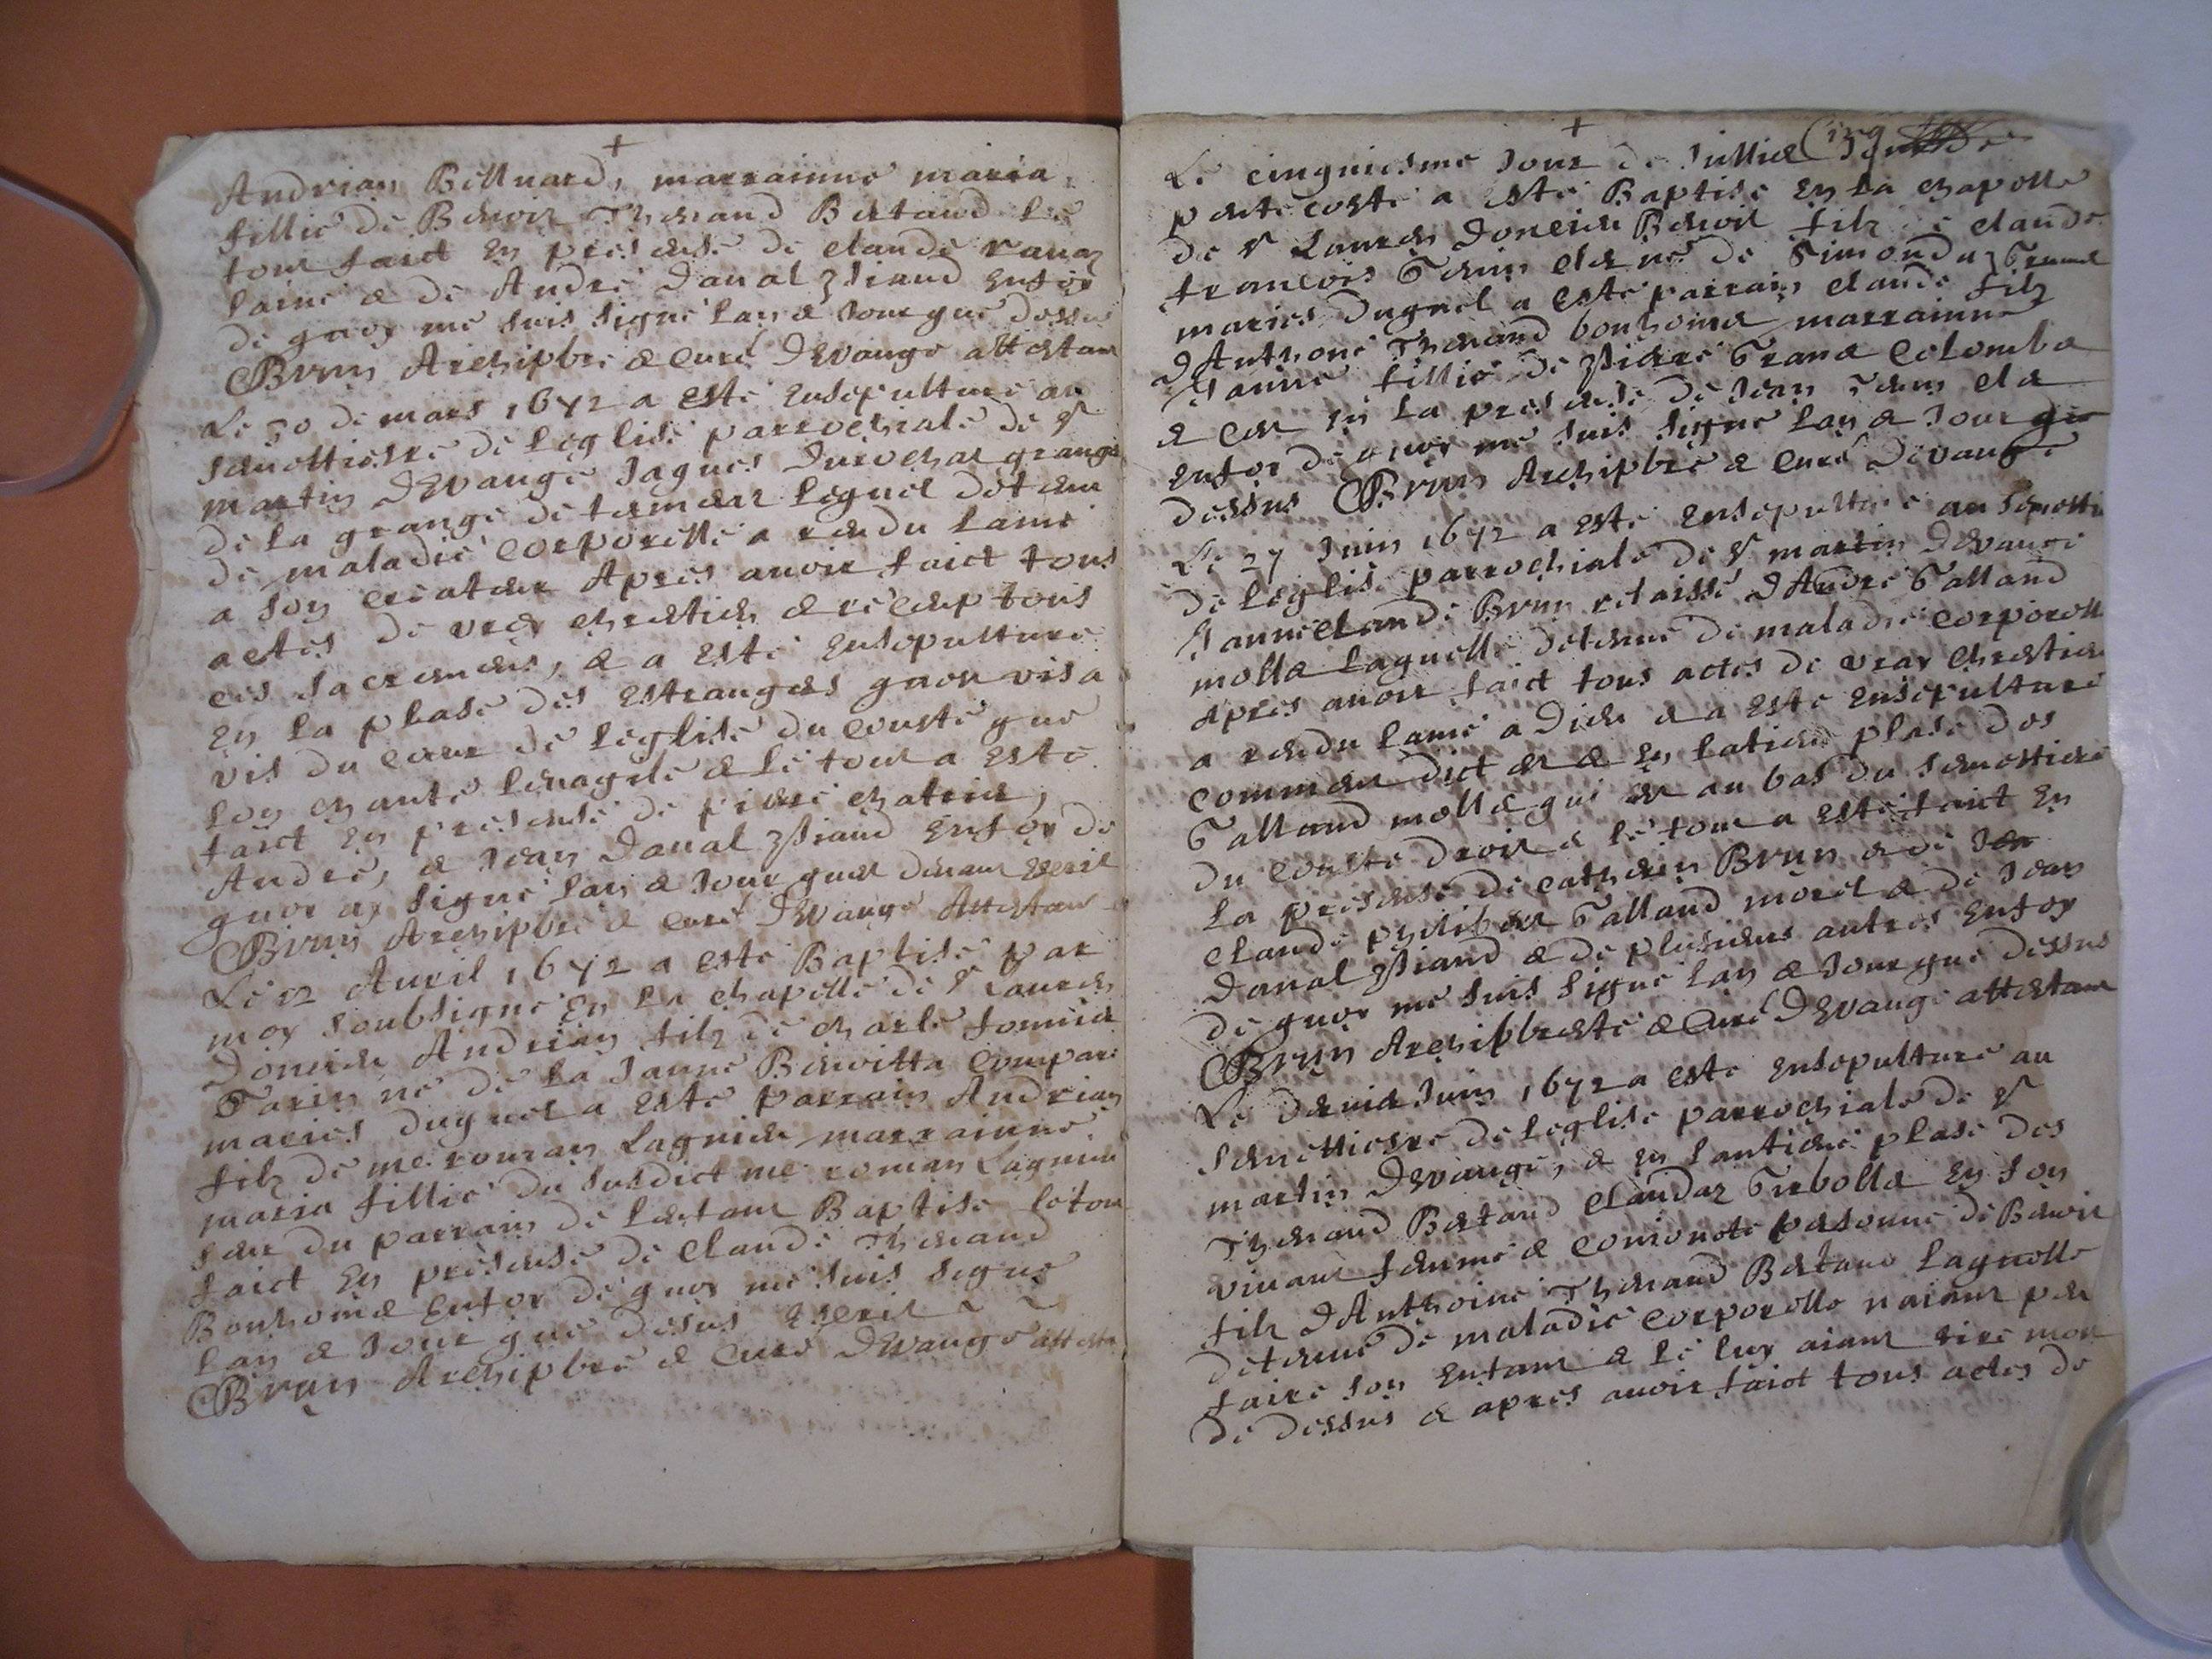 +
Andrian Billuard, marrainne maria
fillie de Benoit Thenand Bertand le
tour faict en presense de claude rauaz
laine & de Andre Danal enfoy
de quoy me suis signe lan & Jour que dessus
Brun Archiptre & Cure Devange attestant
Le 30 de mars 1672 a este ensepulture au
semettiesre de leglise parrochiale de St
martin Devange Jaques Durochat grangie
de la grange de lequel detenu
de maladie corporelle a rendu lame
a son createur Apres avoir faict tous
actes de vray chrestien & receup tous
ces sacremens, & a este ensepulture
en la plase des estrangers quon vis a
vis du ceur de leglise du couste que
lon chante levagile & le tour a este
faict en presense de piere chatrie,
Andre, & Jean Danal enfoy de
quoy ay signe lan & Jour quet devant escrit
Brun Archiptre & Cure Devange Attestant
Le 12 Auril 1672 a este Baptise par
moy soubsigne en la chapelle de St Lauren
Donicie Andrian filz de charle
Tarin ne de la Janne Benoitta compar
maries duquel a este parrain Andrian
filz de me rouman Lagnien marrainne
maria fillie du susdict me roman Lagnien
seur du parrain de lenfant Baptise le tour
faict en presense de Claude Thenand
Bonhome enfoy de quoy me suis signe
lan & Jour que desus escrit
Brun Archiptre & Cure Devange attesta
+
Le cinquiesme Jour de Jullie
pentecoste a este Baptise en la chapelle
de St Lauren Donicie Benoit filz de claude
francois ne de Simonda
maries duquel a este parrain claude filz
dAnthone Thenand bonhome marrainne
Janne fillie de Piere Grand Colomba
& ce en la presense de Jean
enfoy de quoy me suis signe lan & Jour que
dessus Brun Archiptre & Cure Devange
Le 27 Juin 1672 a este ensepulture au semetti
de leglise parrochiale de St martin Devange
Janne claude Brun relaisse dAndre Galland
molla laquelle detenue de maladie corporell
apres avoir faict tous actes de vray chrestien
a rendu lame a Dieu & a este ensepulture
comme dict est & en lantiene plase des
Galland molla qui est au bas du semettiere
du couste droit & le tour a este faict en
la presense de cathein Brun & de Jen
claude philibert Galland morel & de Jean
Danal & de plusieurs autres enfoy
de quoy me suis signe lan & Jour que dessus
Brun Archiprestre & Cure Devange attestant
Le dernie Juin 1672 a este ensepulture au
semettiesre de leglise parrochiale de St
martin Devange, & en lantiene plase des
Thenand Bertand claudaz en son
vivant femme & conionte persone de Benoit
filz dAnthoine Thenand Bertand laquelle
detenue de maladie corporelle naiant peu
faire son enfant & le luy aiant tire mort
de dessus & apres avoir faict tous actes de